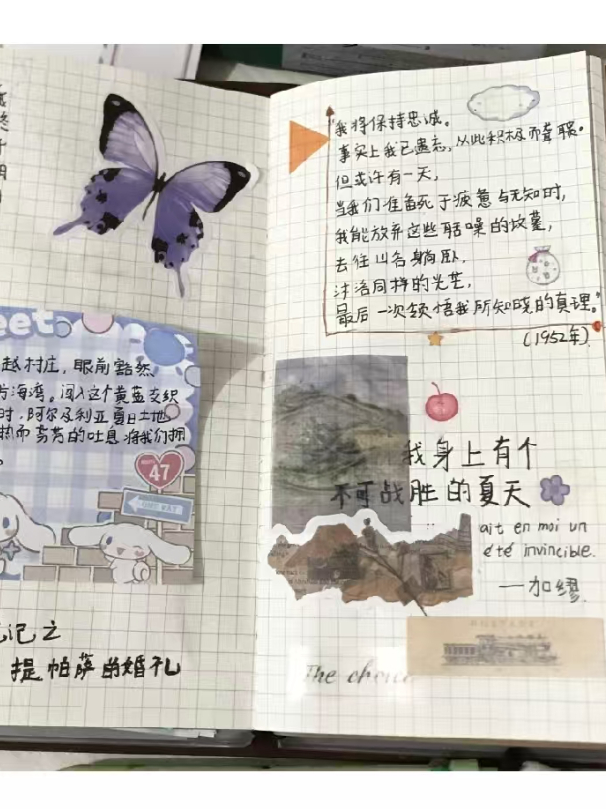 eet
越村庄，眼前豁然
海湾。闯入这个黄蓝交织
时，阿尔及利亚夏日土地
热而芬芳的吐息将我们拥
47
记之
提帕萨的婚礼
"我将保持忠诚。
事实上我已遗忘，从此积极而聋聩。
但或许有一天，
当我们准备死于疲惫与无知时，
我能放弃这些聒噪的坟墓，
去往山谷躺卧，
沐浴同样的光芒，
最后一次领悟我所知晓的真理。"
(1952年)
我身上有个
不可战胜的夏天
ait en moi un
été invincible.
—加缪
The choice